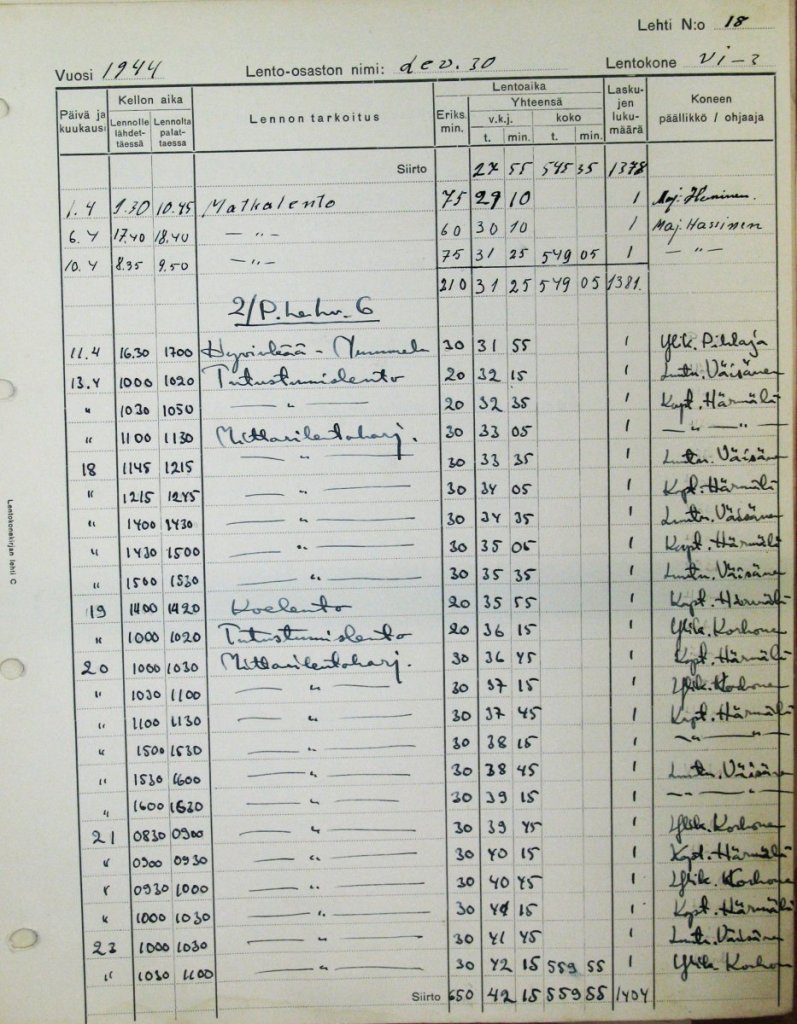 Lehti N:o 18
Vuosi 1944 Lento-osaston nimi: Lev. 30 Lentokone Vi-3
Päivä ja kuukausi Kellon aika Lennolle lähdet-täessä Lennolta palat-taessa Lennon tarkoitus Eriks. min. Lentoaika Yhteensä v.k.j. t. min. koko t. min. Lasku-jen luku-määrä Koneen päällikkö / ohjaaja
Siirto 27 55 545 35 1378
1.4 9.30 10.45 Matkalento 75 29 10 1 Maj.
6.4 17.40 18.40 — " — 60 30 10 1 Maj. Hassinen
10.4 8.35 9.50 — " — 75 31 25 549 05 1 — " —
210 31 25 549 05 1381.
2/P.Le.Lv. 6
11.4 16.30 1700 Hyvinkää - Nummela 30 31 55 1 Ylik. Pihlaja
13.4 1000 1020 Tutustumislento 20 32 15 1 Luutn. Väisänen
" 1030 1050 — " — 20 32 35 1 Kapt. Härmälä
" 1100 1130 Mittarilentoharj. 30 33 05 1 — " — " —
18 1145 1215 — " — 30 33 35 1 Luutn. Väisänen
" 1215 1245 — " — 30 34 05 1 Kapt. Härmälä
" 1400 1430 — " — 30 34 35 1 Luutn. Väisänen
" 1430 1500 — " — 30 35 05 1 Kapt. Härmälä
" 1500 1530 — " — 30 35 35 1 Luutn. Väisänen
19 1400 1420 Koelento 20 35 55 1 Kapt. Härmälä
" 1000 1020 Tutustumislento 20 36 15 1 Ylik. Korhonen
20 1000 1030 Mittarilentoharj. 30 36 45 1 Kapt. Härmälä
" 1030 1100 — " — 30 37 15 1 Ylik. Korhonen
" 1100 1130 — " — 30 37 45 1 Kapt. Härmälä
" 1500 1530 — " — 30 38 15 1 — " — " —
" 1530 1600 — " — 30 38 45 1 Luutn. Väisänen
" 1600 1630 — " — 30 39 15 1 — " — " —
21 0830 0900 — " — 30 39 45 1 Ylik. Korhonen
" 0900 0930 — " — 30 40 15 1 Kapt. Härmälä
" 0930 1000 — " — 30 40 45 1 Ylik. Korhonen
" 1000 1030 — " — 30 41 15 1 Kapt. Härmälä
23 1000 1030 — " — 30 41 45 1 Luutn. Väisänen
" 1030 1100 — " — 30 42 15 559 55 1 Ylik Korhonen
Siirto 650 42 15 559 55 1404
Lentokonekirjan lehti C